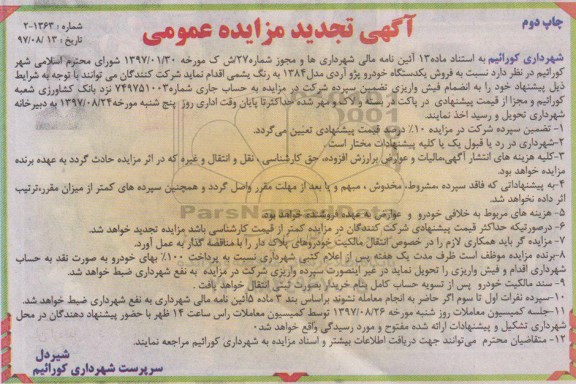 چاپ دوم
آگهی تجدید مزایده عمومی
شماره : ۱۳۶۳-۲
تاریخ : ۹۷/۰۸/۱۳
شهرداری کورائیم به استناد ماده۱۳ آئین نامه مالی شهرداری ها و مجوز شماره۲۷/ش ک مورخه ۱۳۹۷/۰۱/۳۰ شورای محترم اسلامی شهر
کورائیم در نظر دارد نسبت به فروش یکدستگاه خودرو پژو آردی مدل۱۳۸۴ به رنگ یشمی اقدام نماید شرکت کنندگان می توانند با توجه به شرایط
ذیل پیشنهاد خود را به انضمام فیش واریزی تضمین سپرده شرکت در مزایده به حساب جاری شماره۷۴۹۷۵۱۰۰۳ نزد بانک کشاورزی شعبه
کورائیم و مجزا از قیمت پیشنهادی در پاکت در بسته و لاک و مهر شده حداکثرتا پایان وقت اداری روز پنج شنبه مورخه۱۳۹۷/۰۸/۲۴ به دبیرخانه
شهرداری تحویل و رسید اخذ نمایند.
۱- تضمین سپرده شرکت در مزایده ۱۰٪ درصد قیمت پیشنهادی تعیین می‌گردد.
۲-شهرداری در رد یا قبول یک یا کلیه پیشنهادات مختار است .
۳-کلیه هزینه های انتشار آگهی،مالیات و عوارض برارزش افزوده، حق کارشناسی ، نقل و انتقال و غیره که در اثر مزایده حادث گردد به عهده برنده
مزایده خواهد بود.
۴-به پیشنهاداتی که فاقد سپرده ،مشروط، مخدوش ، مبهم و یا بعد از مهلت مقرر واصل گردد و همچنین سپرده های کمتر از میزان مقرر،ترتیب
اثر داده نخواهد شد.
۵- هزینه های مربوط به خلافی خودرو و عوارض به عهده فروشنده خواهد بود.
۶- درصورتیکه حداکثر قیمت پیشنهادی شرکت کنندگان در مزایده کمتر از قیمت کارشناسی باشد مزایده تجدید خواهد شد.
۷- مزایده گر باید همکاری لازم را در خصوص انتقال مالکیت خودروهای پلاک دار را با مناقصه گذار به عمل آورد.
۸-برنده مزایده موظف است ظرف مدت یک هفته پس از اعلام کتبی شهرداری نسبت به پرداخت ۱۰۰٪ بهای خودرو به صورت نقد به حساب
شهرداری اقدام و فیش واریزی را تحویل نماید در غیر اینصورت سپرده واریزی شرکت در مزایده به نفع شهرداری ضبط خواهد شد.
۹- سند مالکیت خودرو پس از تسویه حساب کامل بنام خریدار بصورت ثبتی انتقال خواهد یافت .
۱۰-سپرده نفرات اول تا سوم اگر حاضر به انجام معامله نشوند براساس بند ۳ ماده ۵آئین نامه مالی شهرداری به نفع شهرداری ضبط خواهد شد.
۱۱-جلسه کمیسیون معاملات روز شنبه مورخه ۱۳۹۷/۰۸/۲۶ توسط کمیسیون معاملات راس ساعت ۱۴ ظهر با حضور پیشنهاد دهندگان در محل
شهرداری تشکیل و پیشنهادات ارائه شده مفتوح و مورد رسیدگی واقع خواهد شد .
۱۲- متقاضیان محترم می‌توانند جهت دریافت اطلاعات بیشتر و اسناد مزایده به شهرداری کورائیم مراجعه نمایند.
شیردل
سرپرست شهرداری کورائیم